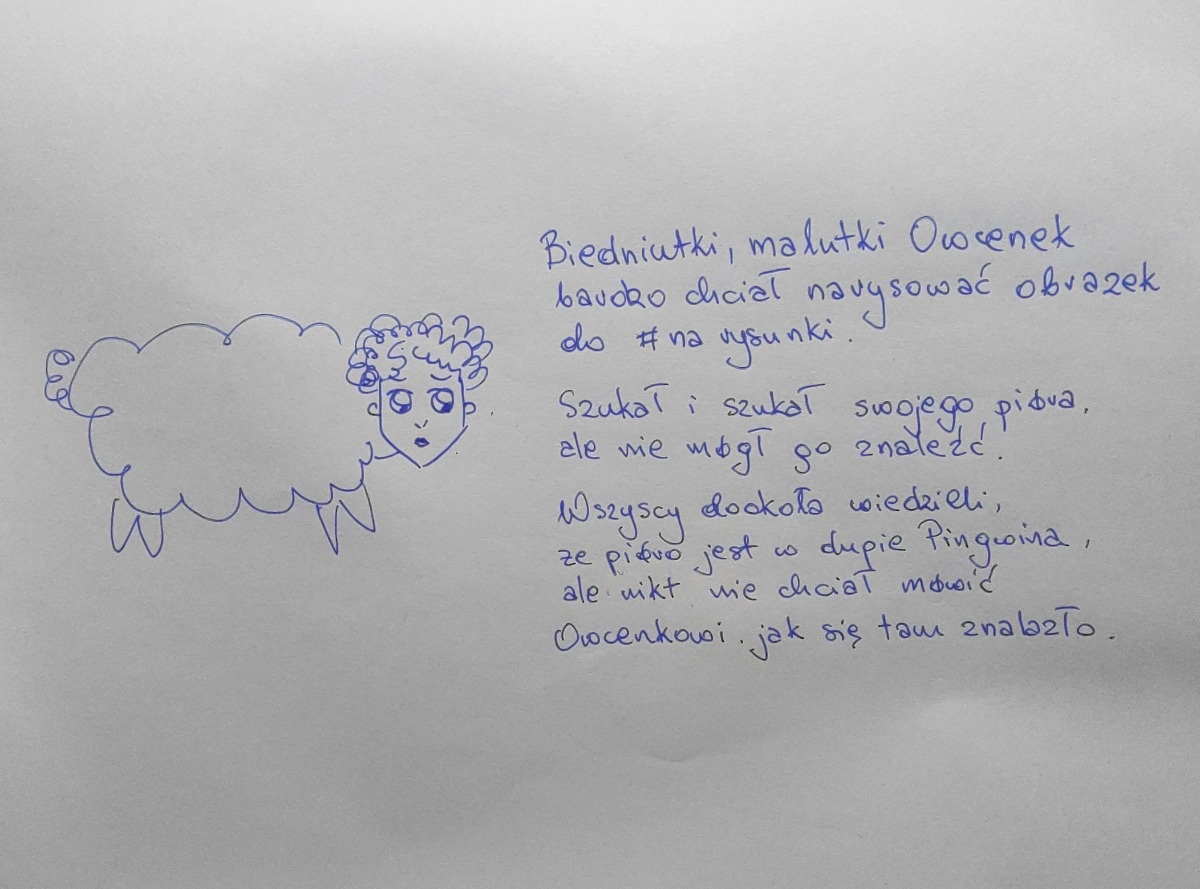 Biedniutki, malutki Owcenek
bardzo chciał narysować obrazek
do #na rysunki.
Szukał i szukał swojego pióra,
ale nie mógł go znaleźć.
Wszyscy dookoła wiedzieli,
że pióro jest w dupie Pingwina,
ale nikt nie chciał mówić
Owcenkowi jak się tam znalazło.